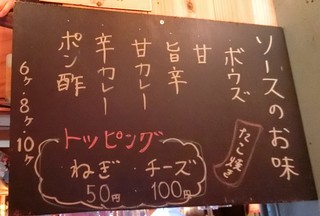 ソースのお味
たこ焼き
ボウズ
甘
旨辛
甘カレー
辛カレー
ポン酢
6ヶ・8ヶ・10ヶ
トッピング
ねぎ 50円
チーズ 100円